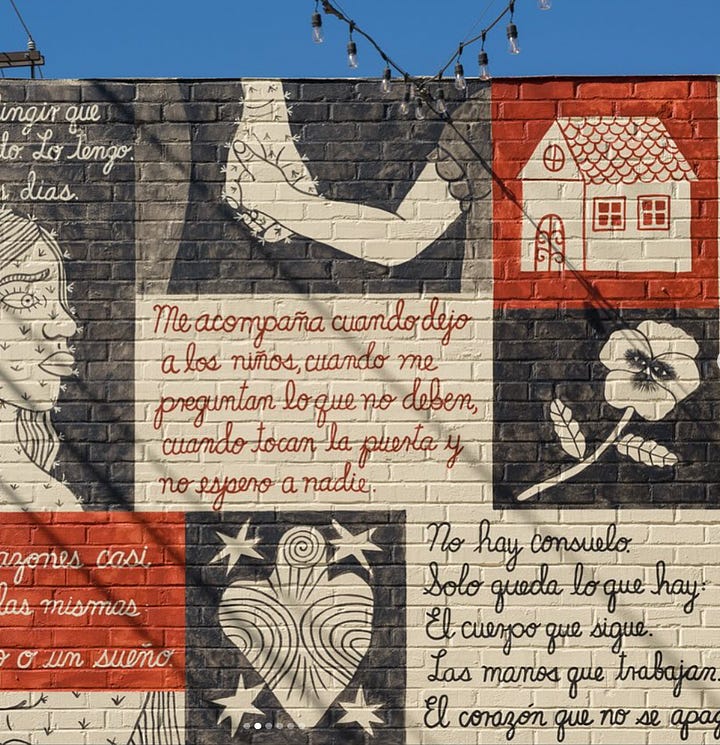 ingir que
do. Lo tengo.
s días.
Me acompaña cuando dejo
a los niños, cuando me
preguntan lo que no deben,
cuando tocan la puerta y
no espero a nadie.
azones casi
las mismas:
o o un sueño.
No hay consuelo.
Solo queda lo que hay:
El cuerpo que sigue.
Las manos que trabajan.
El corazón que no se apag